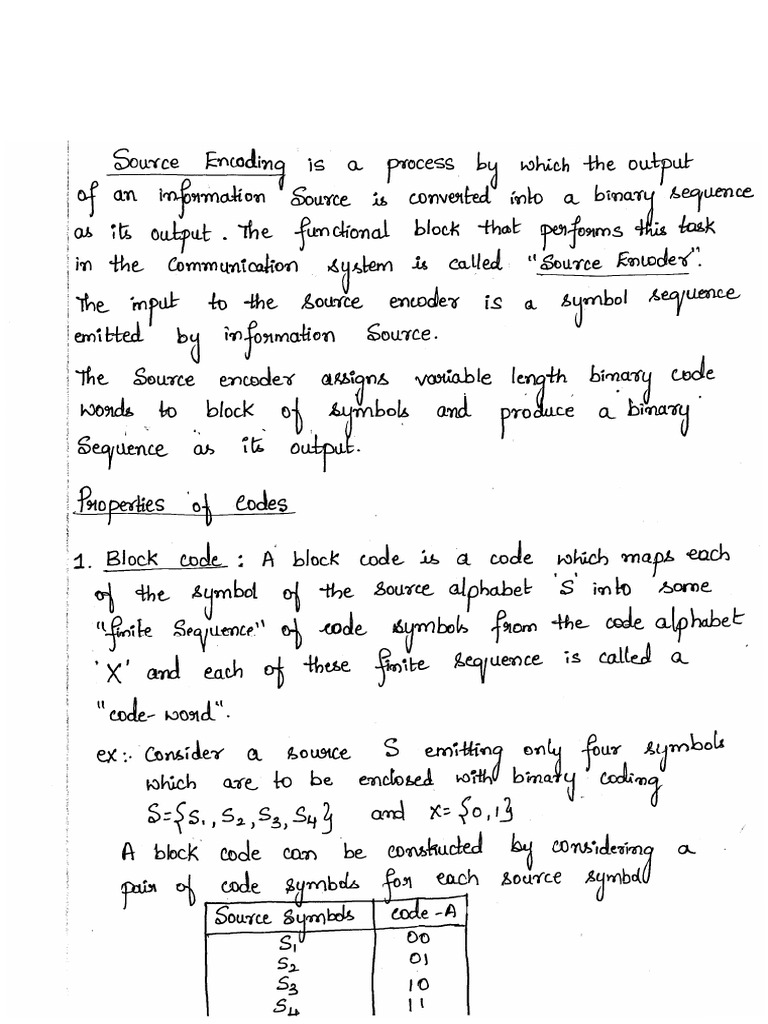 Source Encoding is a process by which the output
of an information Source is converted into a binary sequence
as its output. The functional block that performs this task
in the communication system is called "Source Encoder".
The input to the source encoder is a symbol sequence
emitted by information Source.
The Source encoder assigns variable length binary code
words to block of symbols and produce a binary
Sequence as its output.
Properties of codes
1. Block code : A block code is a code which maps each
of the symbol of the source alphabet 'S' into some
"finite Sequence" of code symbols from the code alphabet
'X' and each of these finite sequence is called a
"code-word".
ex:- Consider a source S emitting only four symbols
which are to be enclosed with binary coding
S={S1, S2, S3, S4} and X={0,1}
A block code can be constructed by considering a
pair of code symbols for each source symbol
Source Symbols code-A
S1 00
S2 01
S3 10
S4 11